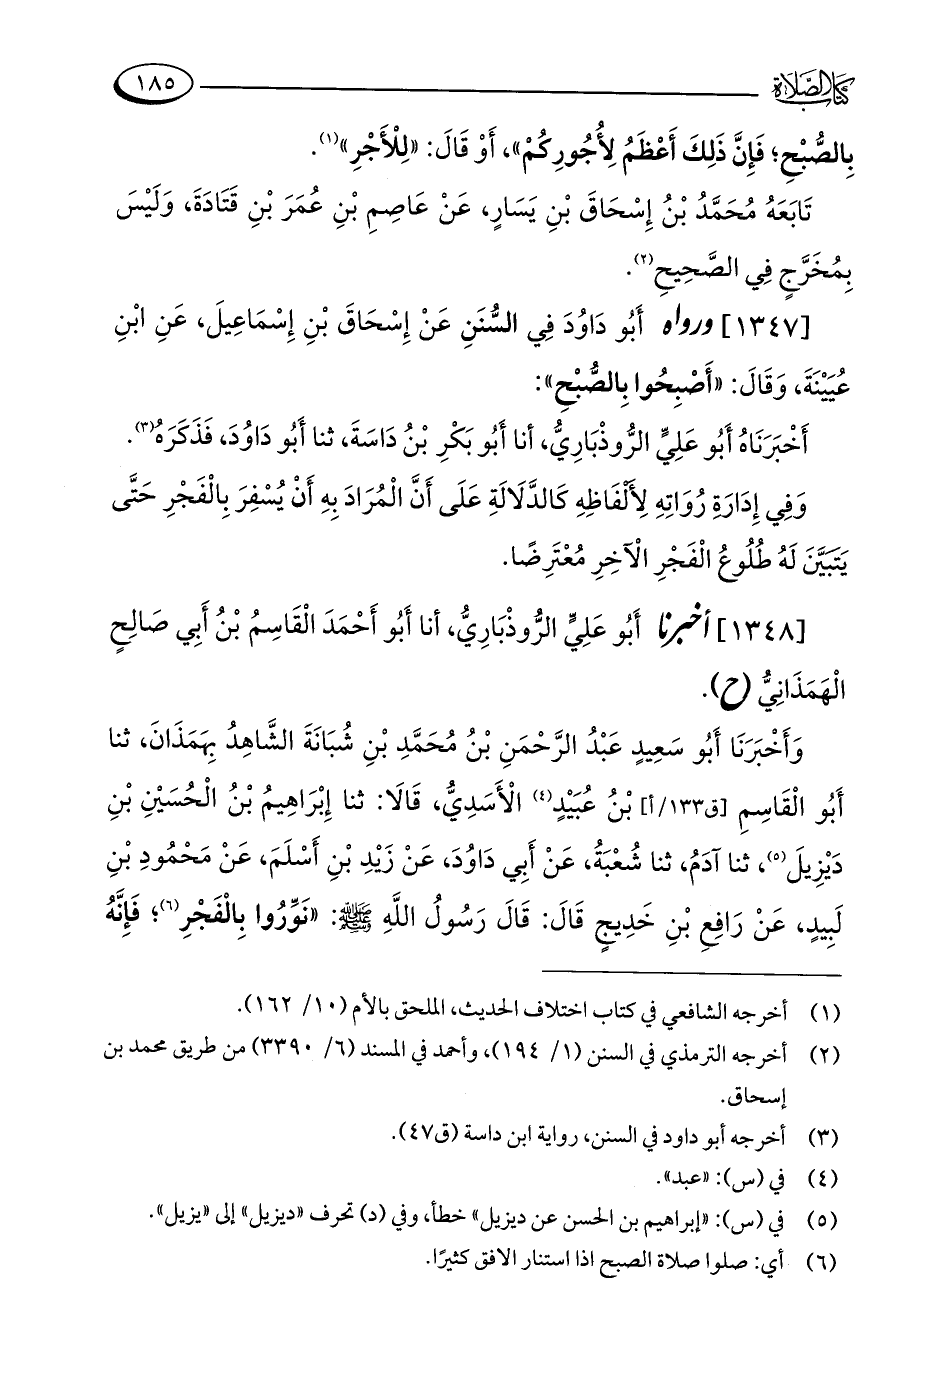 كتاب الصلاة ١٨٥
بِالصُّبْحِ؛ فَإِنَّ ذَلِكَ أَعْظَمُ لِأُجُورِكُمْ»، أَوْ قَالَ: «لِلْأَجْرِ»(١).
تَابَعَهُ مُحَمَّدُ بْنُ إِسْحَاقَ بْنِ يَسَارٍ، عَنْ عَاصِمِ بْنِ عُمَرَ بْنِ قَتَادَةَ، وَلَيْسَ
بِمُخَرَّجٍ فِي الصَّحِيحِ(٢).
[١٣٤٧] ورواه أَبُو دَاوُدَ فِي السُّنَنِ عَنْ إِسْحَاقَ بْنِ إِسْمَاعِيلَ، عَنِ ابْنِ
عُيَيْنَةَ، وَقَالَ: «أَصْبِحُوا بِالصُّبْحِ»:
أَخْبَرَنَاهُ أَبُو عَلِيٍّ الرُّوذْبَارِيُّ، أنا أَبُو بَكْرِ بْنُ دَاسَةَ، ثنا أَبُو دَاوُدَ، فَذَكَرَهُ(٣).
وَفِي إِدَارَةِ رُوَاتِهِ لِأَلْفَاظِهِ كَالدَّلَالَةِ عَلَى أَنَّ الْمُرَادَ بِهِ أَنْ يُسْفِرَ بِالْفَجْرِ حَتَّى
يَتَبَيَّنَ لَهُ طُلُوعُ الْفَجْرِ الْآخِرِ مُعْتَرِضًا.
[١٣٤٨] أخبرنا أَبُو عَلِيٍّ الرُّوذْبَارِيُّ، أنا أَبُو أَحْمَدَ الْقَاسِمُ بْنُ أَبِي صَالِحٍ
الْهَمَذَانِيُّ (ح).
وَأَخْبَرَنَا أَبُو سَعِيدٍ عَبْدُ الرَّحْمَنِ بْنُ مُحَمَّدِ بْنِ شُبَانَةَ الشَّاهِدُ بِهَمَذَانَ، ثنا
أَبُو الْقَاسِمِ [ق١٣٣/أ] بْنُ عُبَيْدٍ(٤) الْأَسَدِيُّ، قَالَا: ثنا إِبْرَاهِيمُ بْنُ الْحُسَيْنِ بْنِ
دَيْزِيلَ(٥)، ثنا آدَمُ، ثنا شُعْبَةُ، عَنْ أَبِي دَاوُدَ، عَنْ زَيْدِ بْنِ أَسْلَمَ، عَنْ مَحْمُودِ بْنِ
لَبِيدٍ، عَنْ رَافِعِ بْنِ خَدِيجٍ قَالَ: قَالَ رَسُولُ اللَّهِ ﷺ: «نَوِّرُوا بِالْفَجْرِ(٦)؛ فَإِنَّهُ
(١) أخرجه الشافعي في كتاب اختلاف الحديث، الملحق بالأم (١٠/ ١٦٢).
(٢) أخرجه الترمذي في السنن (١/ ١٩٤)، وأحمد في المسند (٦/ ٣٣٩٠) من طريق محمد بن
إسحاق.
(٣) أخرجه أبو داود في السنن، رواية ابن داسة (ق٤٧).
(٤) في (س): «عبد».
(٥) في (س): «إبراهيم بن الحسن عن ديزيل» خطأ، وفي (د) تحرف «ديزيل» إلى «يزيل».
(٦) أي: صلوا صلاة الصبح اذا استنار الافق كثيرًا.